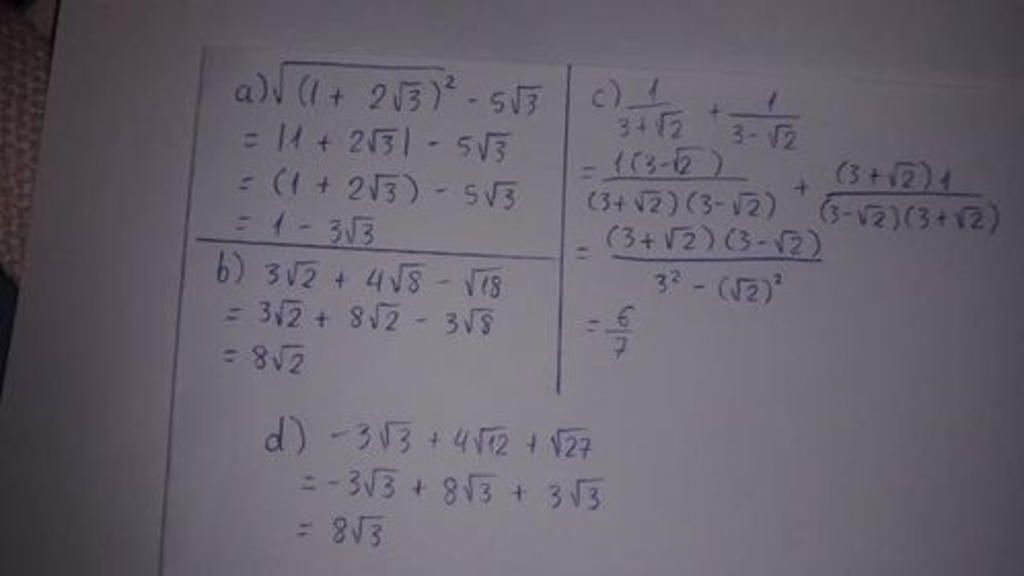 a) √(1 + 2√3)² - 5√3
= |1 + 2√3| - 5√3
= (1 + 2√3) - 5√3
= 1 - 3√3
b) 3√2 + 4√8 - √18
= 3√2 + 8√2 - 3√8
= 8√2
c) 1/(3+√2) + 1/(3-√2)
= 1(3-√2)/(3+√2)(3-√2) + (3+√2)1/(3-√2)(3+√2)
= (3+√2)(3-√2)/3² - (√2)²
= 6/7
d) -3√3 + 4√12 + √27
= -3√3 + 8√3 + 3√3
= 8√3